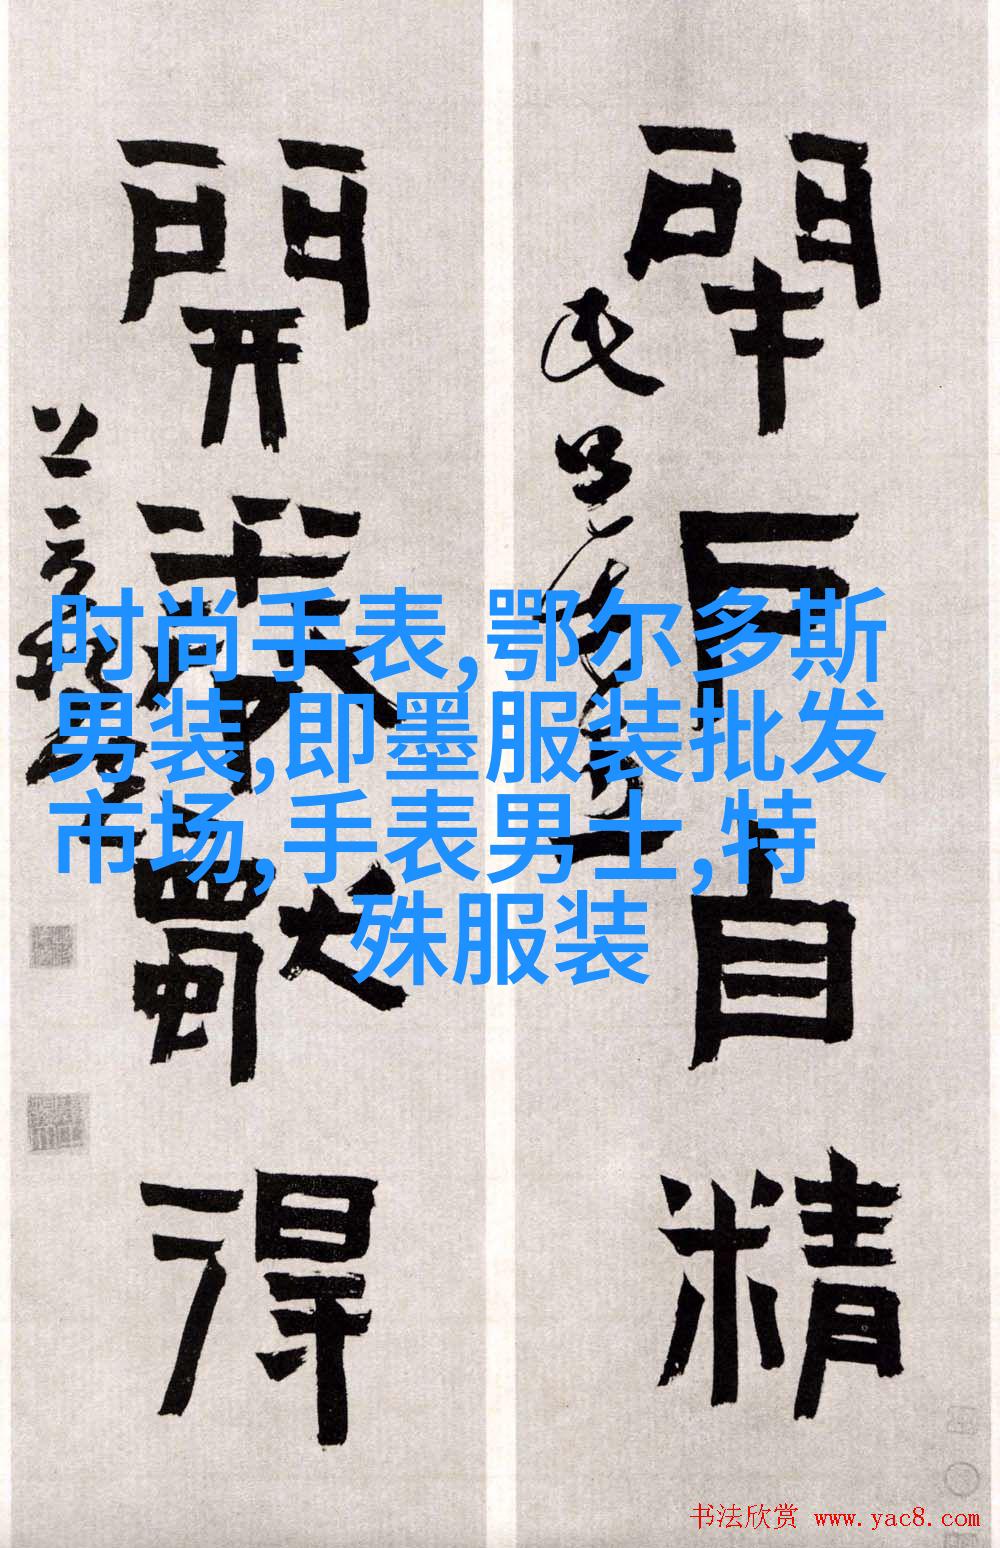 閉戶自精
開卷獨得
时尚手表,鄂尔多斯
男装,即墨服装批发
市场,手表男士,特
殊服装
书法欣赏 www.yac8.com